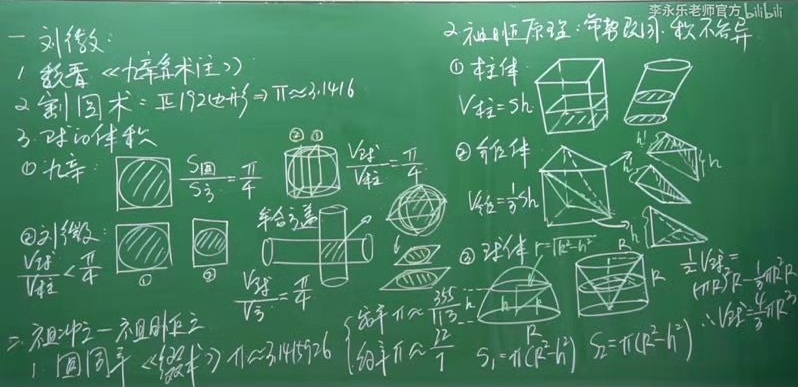 李永乐老师官方 bilibili
一 刘徽:
1. 数著《九章算术注》
2. 割圆术: 正192边形⇒π≈3.1416
3. 球的体积
① 九章: S圆/S方=π/4 ② ① V球/V柱=π/4
② 刘徽: V球/V柱<π/4 ① ② 牟合方盖 V球/V方=π/4
二. 祖冲之—祖暅之
1. 圆周率《缀术》π≈3.1415926 { 密率π≈355/113 约率π≈22/7
2. 祖暅原理: 幂势既同, 积不容异
① 柱体
V柱=Sh
② 锥体
V锥=1/3Sh h h h
③ 球体 r=√R²-h² h R R R
S₁=π(R²-h²) S₂=π(R²-h²)
1/2V球=
(πR²)R-1/3πR²R
∴V球=4/3πR³